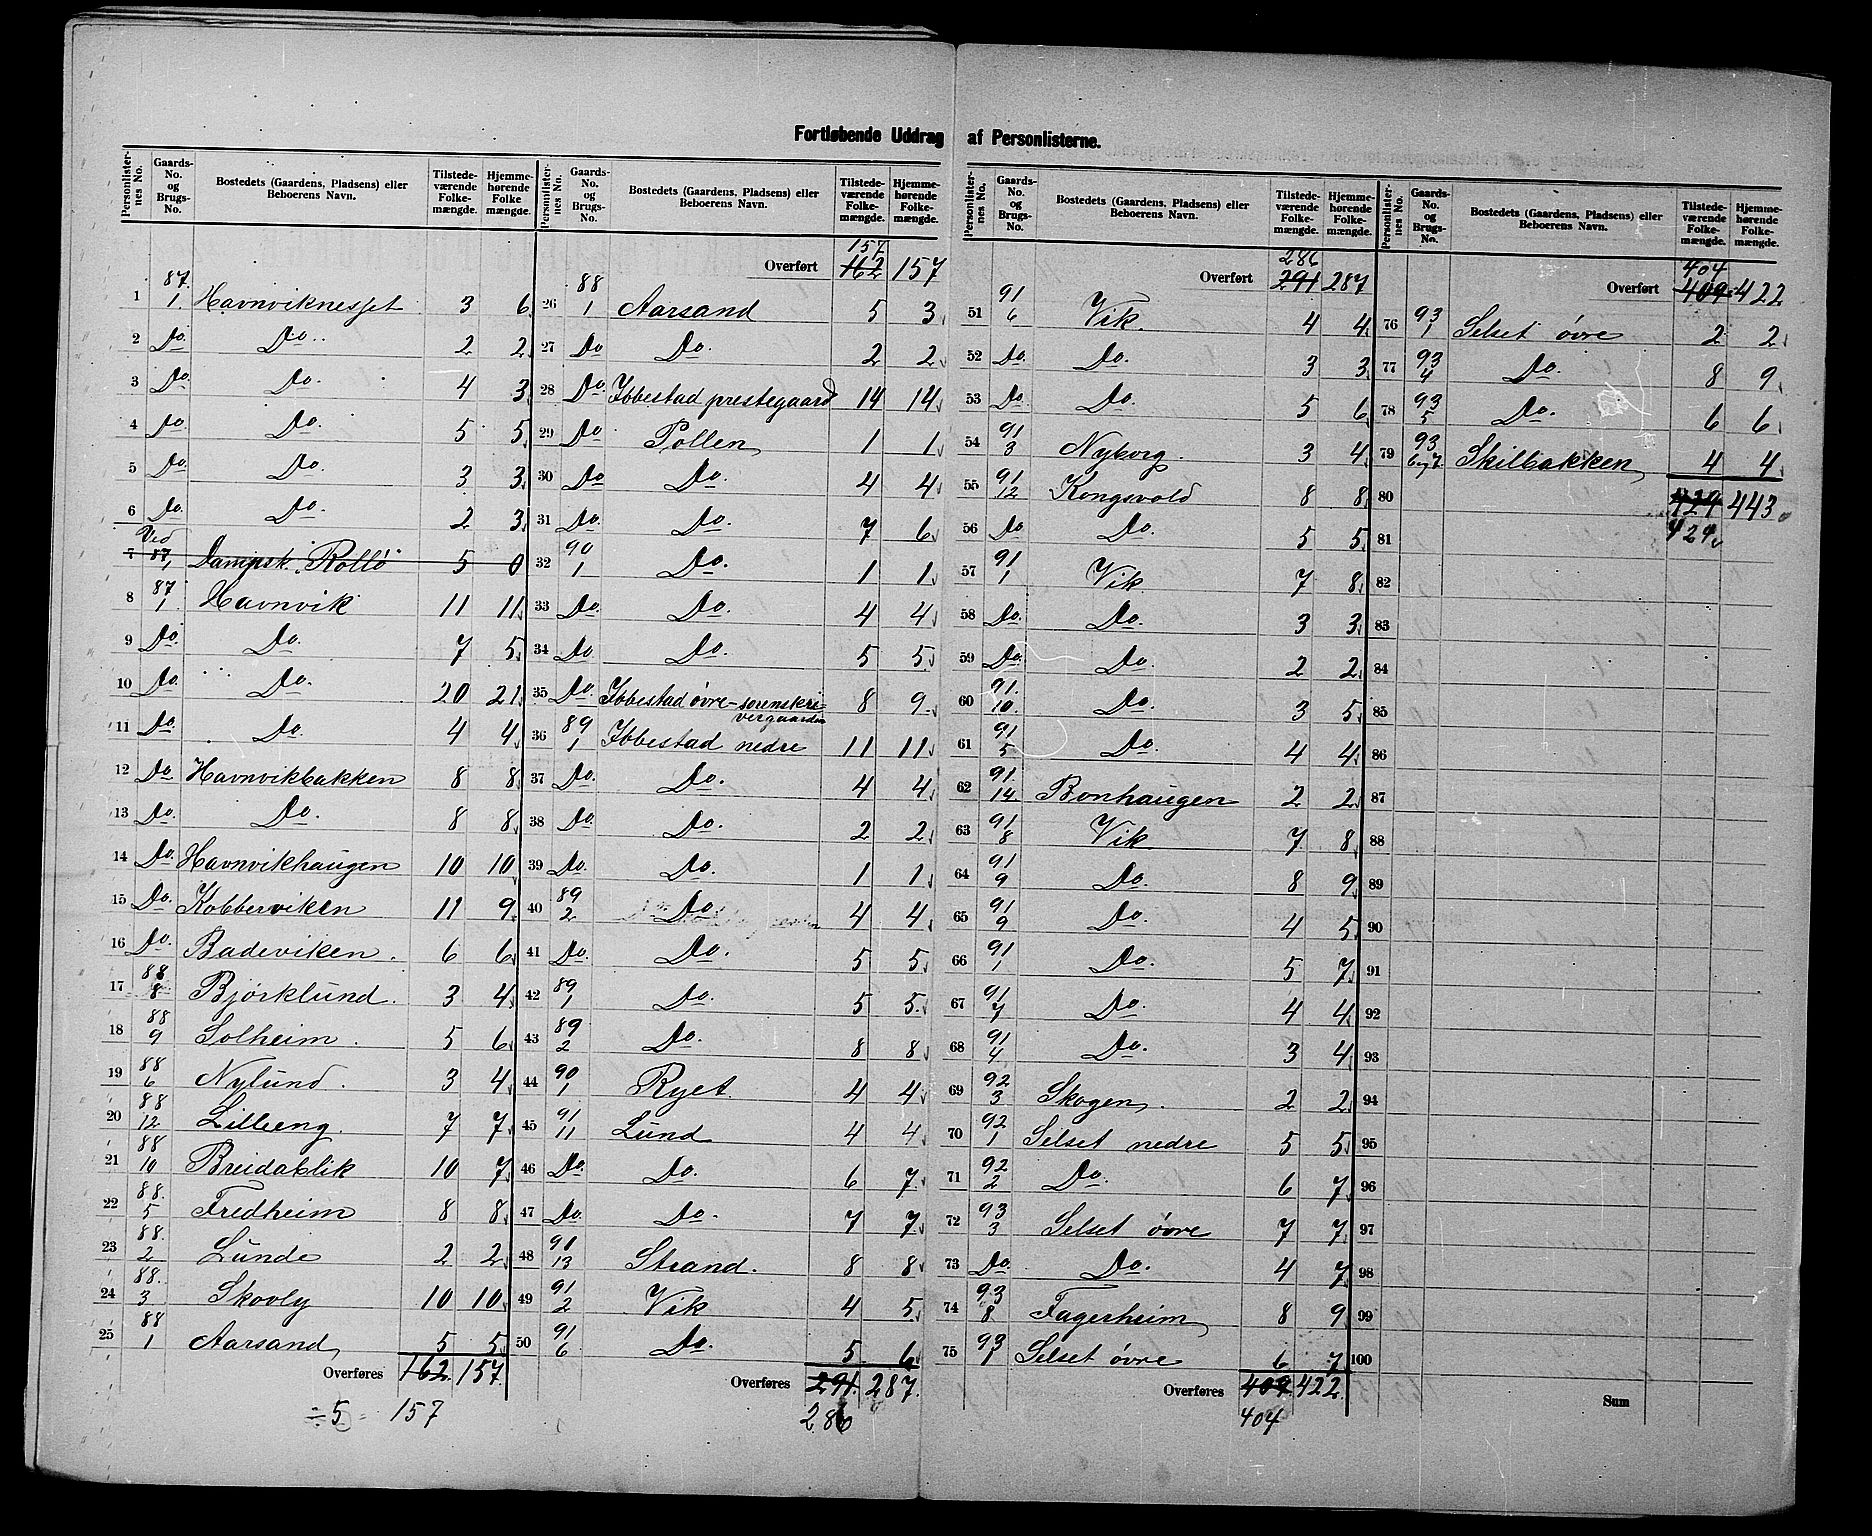 Fortløbende Uddrag af Personlisterne.
Personlisternes No. | Gaards-No. og Brugs-No. | Bostedets (Gaardens, Pladsens) eller Beboerens Navn. | Tilstedeværende Folkemængde. | Hjemmehørende Folkemængde.
1 87/1. Havnviknesset 3 6
2 Do Do.. 2 2
3 Do. Do. 4 3
4 Do Do. 5 5
5 Do. Do. 3 3
6 Do. Do. 2 3
7 Ved 87/1 Dampsk. Rollö 5 0
8 87/1 Havnvik 11 11
9 Do. Do. 7 5
10 Do. Do. 20 21
11 Do. Do. 4 4
12 Do. Havnvikbakken 8 8
13 Do. Do. 8 8
14 Do. Havnvikhaugen 10 10
15 Do. Kobberviken 11 9
16 Do. Badeviken. 6 6
17 88/8 Bjørklund. 3 4
18 88/9 Solheim. 5 6
19 88/6 Nylund. 3 4
20 88/12 Lilleeng. 7 7
21 88/10 Breidablik 10 7
22 88./5 Fredheim 8 8
23 88./2 Lunde 2 2
24 88./3 Skovly 10 10
25 88/1 Aarsand 5 5
Overføres 162 157
÷5 = 157
157
Overført 162 157
26 88/1 Aarsand 5 3
27 Do Do. 2 2
28 Do Ibbestad prestegaard 14 14
29 Do Pollen 1 1
30 Do Do. 4 4
31 Do. Do. 7 6
32 90/1 Do. 1 1
33 Do. Do. 4 4
34 Do Do. 5 5
35 Do. Ibbestad øvre-sorenskrivergaarden 8 9
36 89/1 Ibbestad nedre 11 11
37 Do. Do. 4 4
38 Do. Do. 2 2
39 Do. Do. 1 1
40 89/2 Do. 4 4
41 Do. Do. 5 5
42 89/1 Do. 5 5
43 89/2 Do. 8 8
44 90/1 Ryet. 4 4
45 91/11 Lund 4 4
46 Do. Do. 6 7
47 Do. Do. 7 7
48 91/13 Strand. 8 8
49 91/2 Vik 4 5
50 91/6 Do. 5 6
Overføres 291 287
286
286
Overført 291 287
51 91/6 Vik. 4 4
52 Do. Do. 3 3
53 Do. Do. 5 6
54 91/3 Nyborg. 3 4
55 91/12 Kongsvold 8 8
56 Do Do. 5 5
57 91/1 Vik 7 8
58 Do. Do. 3 3
59 Do. Do. 2 2
60 91./10. Do. 3 5
61 91/5 Do. 4 4
62 91./14. Bonhaugen 2 2
63 91/8 Vik 7 8
64 91/9 Do. 8 9
65 91/9 Do. 4 5
66 91/1 Do. 5 7
67 91/7 Do. 4 4
68 91/4 Do. 3 4
69 92/3 Skogen. 2 2
70 92/1 Selset nedre 5 5
71 92/2 Do. 6 7
72 93/3 Selset øvre 7 7
73 Do. Do. 4 7
74 93/8 Fagerheim 8 9
75 93/1 Selset øvre 6 7
Overføres 409 422
404
404
Overført 409 422
76 93/1 Selset øvre 2 2
77 93/4 Do. 8 9
78 93/5 Do. 6 6
79 93/6og7 Skilbakken 4 4
80 429 443
81 424
82
83
84
85
86
87
88
89
90
91
92
93
94
95
96
97
98
99
100
Sum